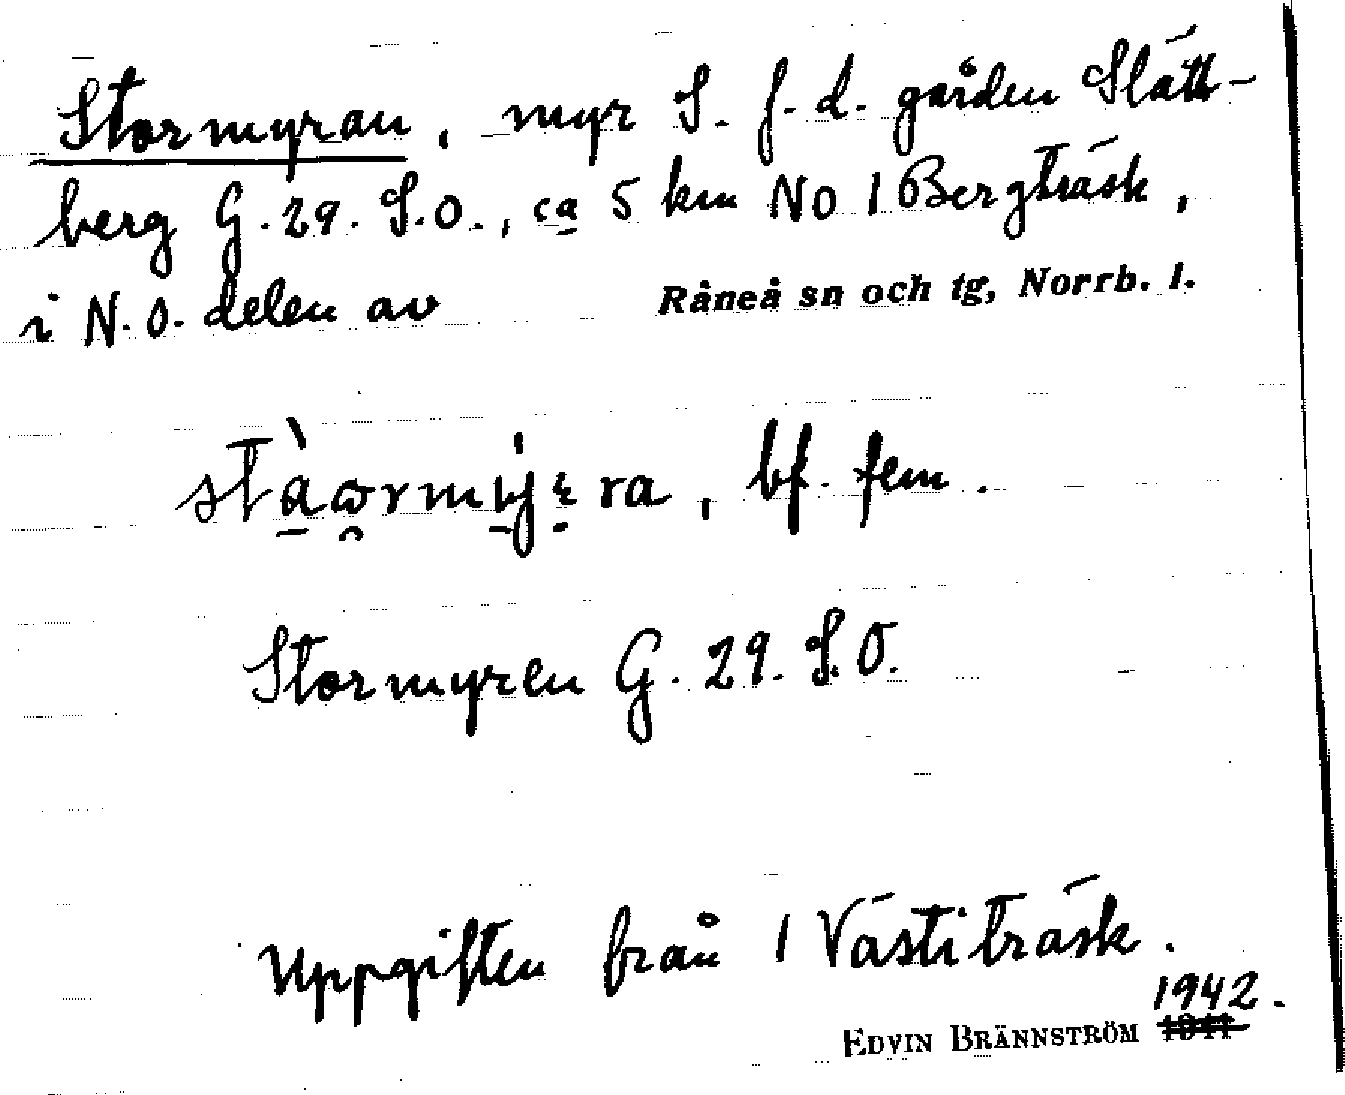 Stormyran, myr S. f.d. gården Slätt-
berg G.29. S.O., ca 5 km NO 1 Bergträsk,
i N.O. delen av Råneå sn och tg, Norrb. l.
bf. fem.
Stormyren G.29. S.O.
Uppgiften från 1 Västiträsk.
1942.
EDVIN BRÄNNSTRÖM 1941